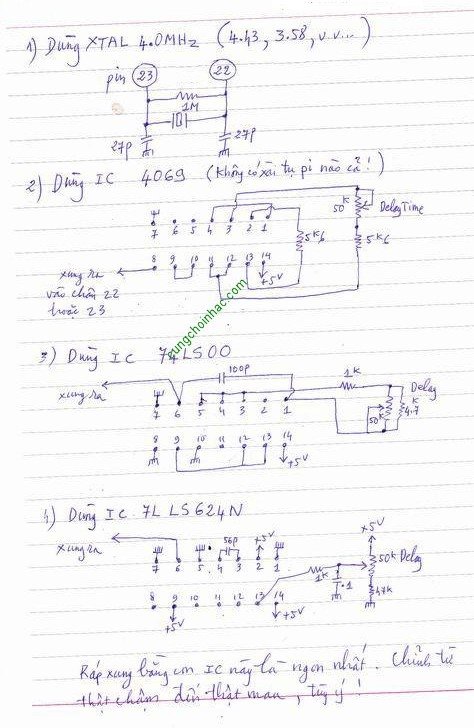 1) Dùng XTAL 4.0MHz (4.43, 3.58, v.v...)
pin 23 22
1M
27p 27p
2) Dùng IC 4069 (Không có xài tụ pi nào cả!)
50K Delay Time
7 6 5 4 3 2 1
5K6 5K6
8 9 10 11 12 13 14
+5V
xung ra
vào chân 22
hoặc 23
cungchoinhac.com
3) Dùng IC 74LS00
100p
xung ra
1K Delay
7 6 5 4 3 2 1
50K 4.7
8 9 10 11 12 13 14
+5V
4) Dùng IC 7L LS624N
xung ra
56p +5V +5V
7 6 5 4 3 2 1
50K Delay
1K .1
47K
8 9 10 11 12 13 14
+5V +5V
Ráp xung bằng con IC này là ngon nhất. Chỉnh từ
thật chậm đến thật mau, tùy ý!